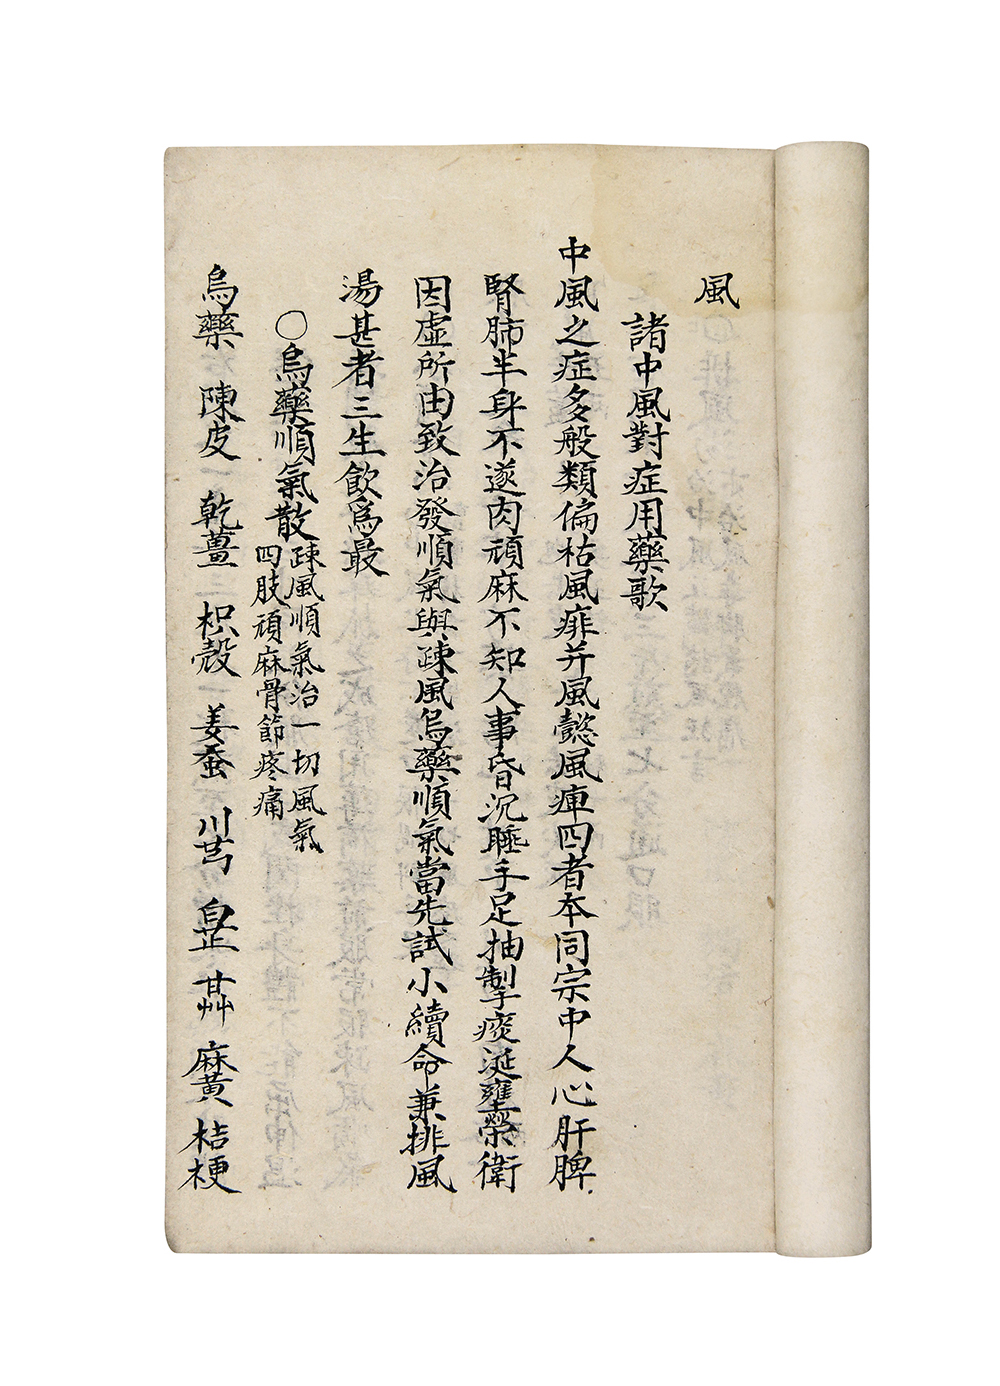 風
諸中風對症用藥歌
中風之症多般類偏枯風痱并風懿風痺四者本同宗中人心肝脾
腎肺半身不遂肉頑麻不知人事昏沉睡手足抽掣痰涎壅榮衛
因虛所由致治發順氣與踈風烏藥順氣當先試小續命兼排風
湯甚者三生飲爲最
〇烏藥順氣散
踈風順氣治一切風氣
四肢頑麻骨節疼痛
烏藥 陳皮 乾薑 枳殼 姜蚕 川芎 白芷 甘艸 麻黃 桔梗